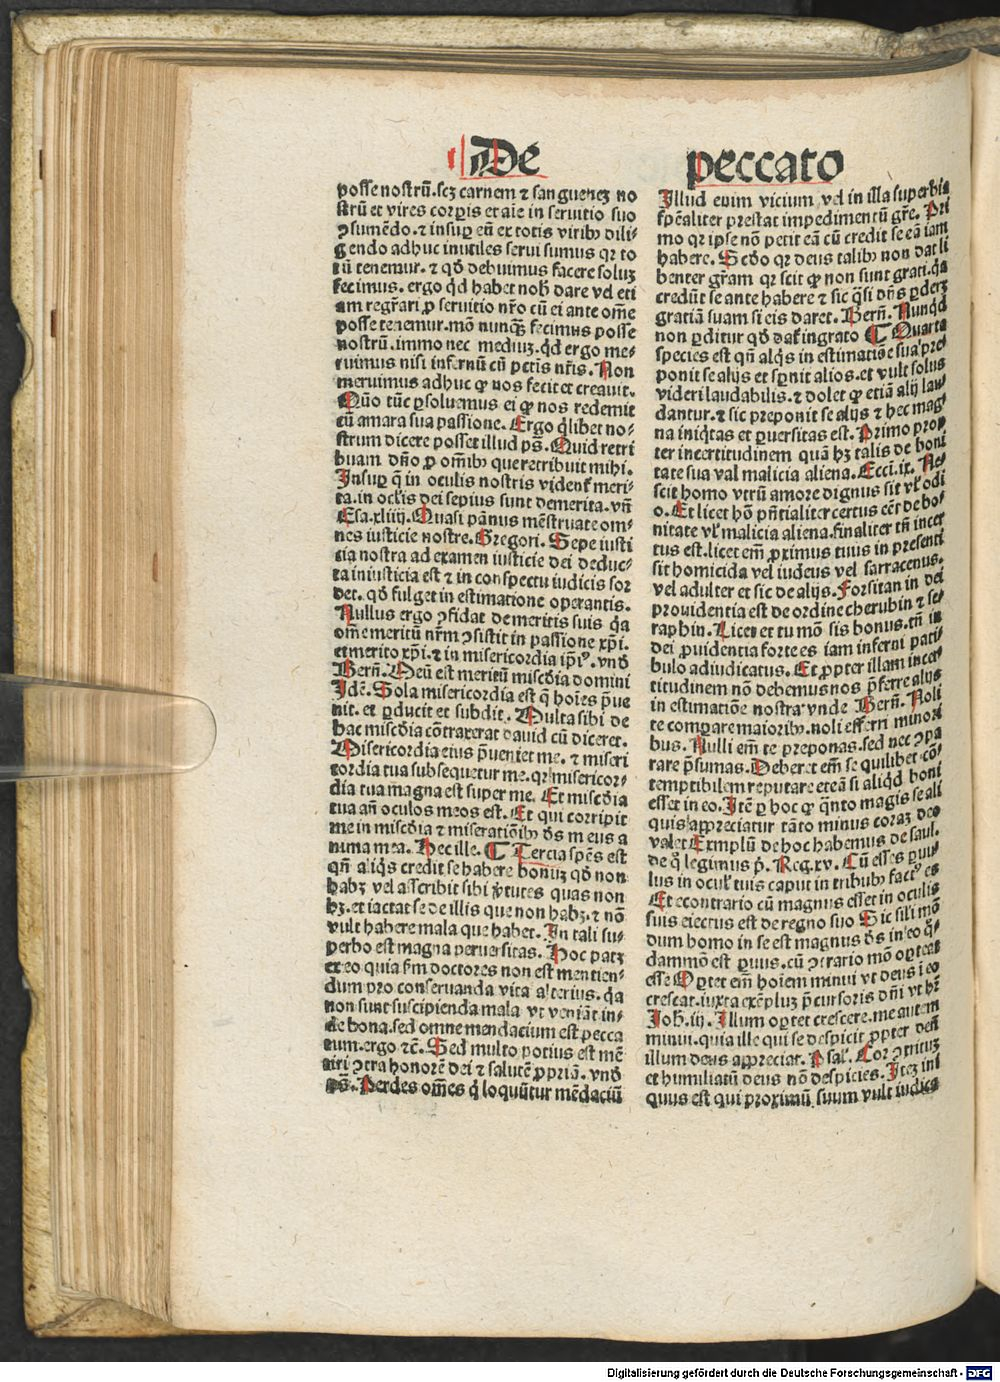 De peccato
posse nostrū.scꝫ carnem ⁊ sanguenez no
strū et vires corpis et aīe in seruitio suo
ꝯsumēdo.⁊ insuꝑ eū ex totis viribꝰ dili-
gendo adhuc inutiles serui sumus qꝛ to
tū tenemur.⁊ qd̄ debuimus facere soluꝫ
fecimus. ergo qͥd habet nob̄ dare vel eti
am regr̄ari ꝓ seruitio nr̄o cū ei ante om̄e
posse tenemur.mō nunqꝫ fecimus posse
nostrū.immo nec mediuꝫ.qͥd ergo me-
ruimus nisi infernū cū pctīs nr̄is. Non
meruimus adhuc ꝙ nos fecit et creauit.
Quō tūc ꝑsoluemus ei ꝙ nos redemit
cū amara sua passione. Ergo qͥlibet no-
strum dicere posset illud ps̄. Quid retri
buam dn̄o ꝓ om̄ibꝰ que retribuit mihi.
Insuꝑ q̄ in oculis nostris vident̄ meri-
ta.in oclis dei sepius sunt demerita. vn̄
Esa.xliiij. Quasi pānus mēstruate om-
nes iusticie nostre. Gregori. Sepe iusti
cia nostra ad examen iusticie dei deduc-
ta iniusticia est ⁊ in conspectu iudicis sor
det. qd̄ fulget in estimatione operantis.
Nullus ergo ꝯfidat de meritis suis qͣa
om̄e meritū nr̄m ꝯsistit in passione xp̄i.
et merito xp̄i.⁊ in misericordia ip̄iꝰ.vnd̄
Bern̄. Meū est meritū miscd̄ia domini
Idē. Sola misericordia est q̄ hoīes p̄ue
nit. et ꝑducit et subdit. Multa sibi de
hac miscd̄ia cōtraxerat dauid cū diceret.
Misericordia eius p̄ueniet me. ⁊ miseri
cordia tua subsequetur me.qꝛ misericor-
dia tua magna est super me. Et miscd̄ia
tua an̄ oculos meos est. Et qui corripit
me in miscd̄ia ⁊ miseratiōibꝰ ds̄ meus a
nima mea. Hec ille. ¶ Tercia spēs est
qn̄ aliqͥs credit se habere bonuꝫ qd̄ non
habꝫ vel asscribit sibi v̄tutes quas non
hꝫ.et iactat se de illis que non habꝫ.⁊ nō
vult habere mala que habet. In tali su-
perbo est magna peruersitas. Hoc patꝫ
ex eo quia sm̄ doctores non est mentien-
dum pro conseruanda vita alterius. qͣa
non sunt suscipienda mala vt veniāt in-
de bona.sed omne mendacium est pecca
tum.ergo ⁊c̄. Sed multo potius est mē
tiri ꝯtra honorē dei ⁊ salutē ꝓpriā. vnd̄
ps̄. Perdes om̄es qͥ loquūtur mēdaciū
Illud enim vicium vel in illa superbia
sp̄ealiter prestat impedimentū gr̄e. Pri
mo qꝛ ipse nō petit eā cū credit se eā iam
habere. Scd̄o qꝛ deus talibꝰ non dat li
benter gr̄am qꝛ scit ꝙ non sunt grati.qͣa
credūt se ante habere ⁊ sic qͣsi dn̄s ꝑderꝫ
gratiā suam si eis daret. Bern̄. Nunqͥd
non ꝑditur qd̄ dat̄ ingrato ¶ Quarta
species est qn̄ alqͥs in estimatiōe sua pre
ponit se alijs et spnit alios.et vult solus
videri laudabilis.⁊ dolet ꝙ etiā alij lau
dantur.⁊ sic preponit se alijs ⁊ hec mag
na iniqͥtas et ꝑuersitas est. Primo prop
ter incertitudinem quā hꝫ talis de boni
tate sua val malicia aliena. Ecci.ix. Ne-
scit homo vtrū amore dignus sit vl̄ odi
o. Et licet hō pn̄tialiter certus eēt de bo-
nitate vl̄ malicia aliena.finaliter tn̄ incer
tus est.licet em̄ ꝓximus tuus in presenti
sit homicida vel iudeus vel sarracenus.
vel adulter et sic de alijs. Forsitan in dei
prouidentia est de ordine cherubin ⁊ se-
raphin. Licet et tu mō sis bonus.tn̄ in
dei ꝓuidentia forte es iam inferni pati-
bulo adiudicatus. Et ꝓpter illam incer
titudinem nō debemus nos p̄ferre alijs
in estimatiōe nostra vnde Bern̄. Noli
te comparare maioribꝰ.noli efferri minori
bus. Nulli em̄ te preponas.sed nec ꝯpa
rare p̄sumas. Deberet em̄ se quilibet cō-
temptibilem reputare eteā si aliqd̄ boni
esset in eo. Itē ꝑ hoc ꝙ qͣnto magis se ali
quis appreciatur tāto minus coraꝫ deo
valet Exmplū de hoc habemus de saul.
de qͦ legimus p̄. Reg.xv. Cū esses ꝑuu
lus in ocul̄ tuis caput in tribubꝰ factꝰ es
Et econtrario cū magnus esset in oculis
suis eiectus est de regno suo Sic sili mō
dum homo in se est magnus ds̄ in eo qͦ-
dammō est ꝑuus. cū ꝯtrario mō oporteat
esse Oportet em̄ hoīem minui vt deus ī eo
crescat.iuxta exēpluꝫ p̄cursoris dn̄i vt hr̄
Joh̄.iij. Illum oportet crescere.me autem
minui.quia ille qui se despicit ꝓpter deū
illum deus appreciat. Psal. Cor ꝯtrituꝫ
et humiliatū deus nō despicies. Iteꝫ ini
quus est qui proximū suum vult iudica
Digitalisierung gefördert durch die Deutsche Forschungsgemeinschaft - DFG